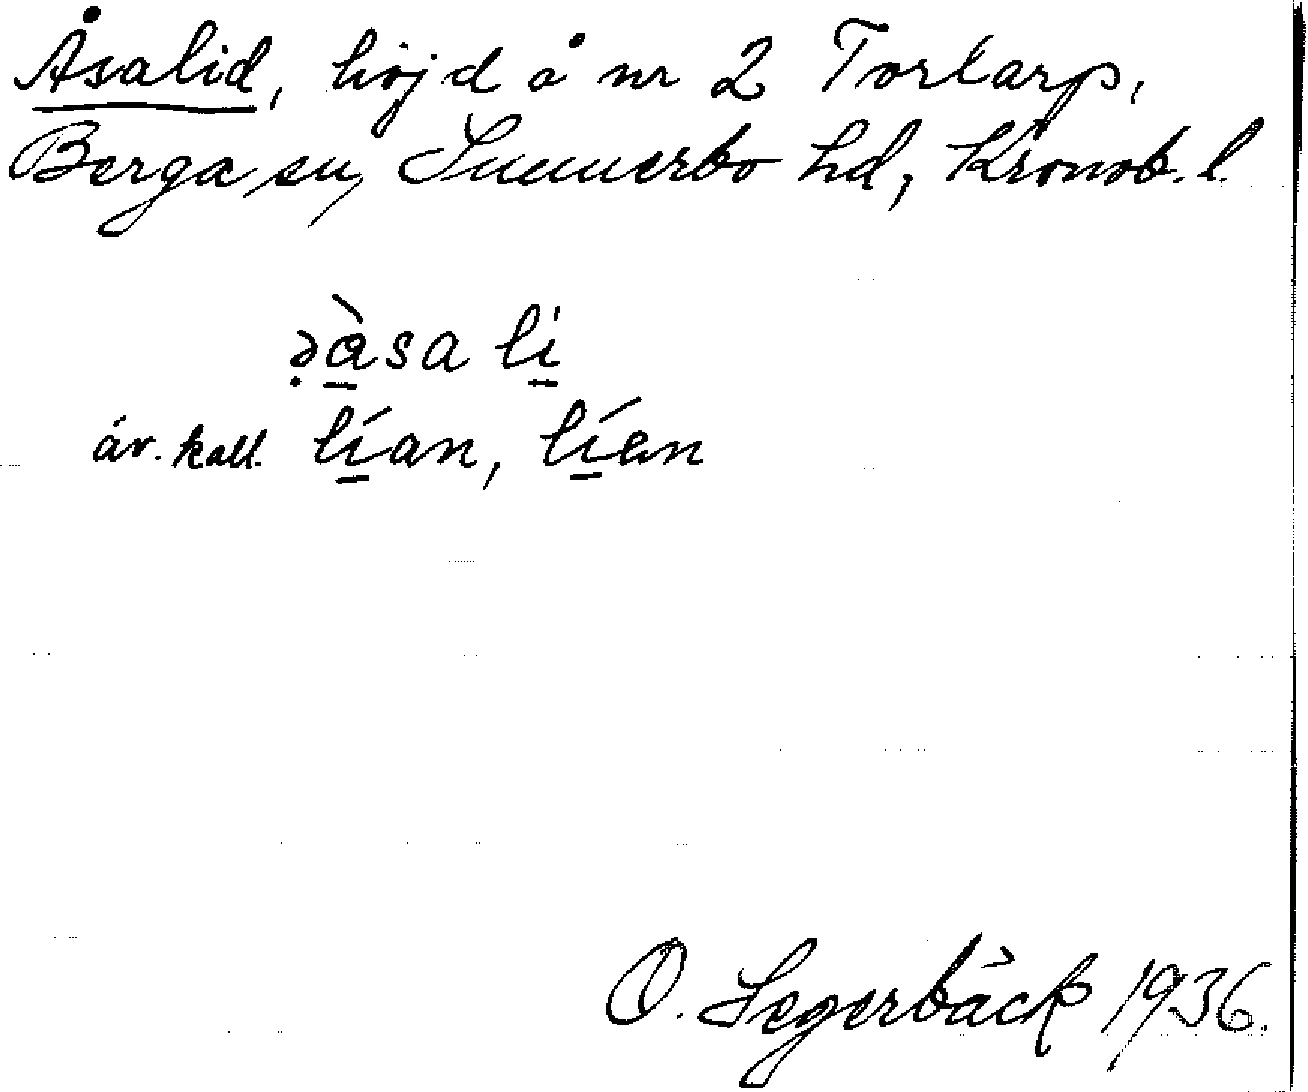 Åsalid, höjd å nr 2 Torlarp,
Berga sn, Sunnerbo hd, Kronob. l.
ə̣à̱sa li̱
äv. kall. lí̱an, lí̱en
O. Segerbäck 1936.